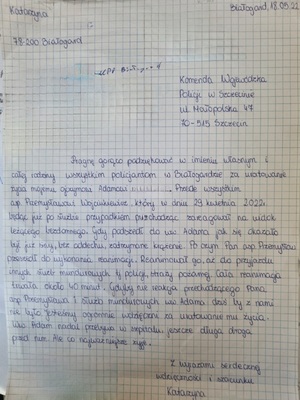 Katarzyna
Białogard, 18.05.22
78-200 Białogard
KPP Białogard
Komenda Wojewódzka
Policji w Szczecinie
ul. Małopolska 47
70-515 Szczecin
Pragnę gorąco podziękować w imieniu własnym i
całej rodziny wszystkim policjantom w Białogardzie za uratowanie
życia mojemu ojczymowi Adamowi. Przede wszystkim
asp. Przemysławowi Wojcinkiewicz, który w dniu 29 kwietnia 2022r.
będąc już po służbie przypadkiem przechodząc zareagował na widok
leżącego bezdomnego. Gdy podszedł do w/w Adama jak się okazało
był już siny, bez oddechu, zatrzymane krążenie. Po czym Pan asp. Przemysław
przeszedł do wykonania reanimacji. Reanimował go, aż do przyjazdu
innych służb mundurowych tj. policji, straży pożarnej. Cała reanimacja
trwała około 40 minut. Gdyby nie reakcja przechodzącego Pana
asp. Przemysława i służb mundurowych w/w Adama dziś by z nami
nie było. Jesteśmy ogromnie wdzięczni za uratowanie mu życia.
W/w Adam nadal przebywa w szpitalu, jeszcze długa droga
przed nim. Ale co najważniejsze żyje.
Z wyrazami serdecznej
wdzięczności i szacunku
Katarzyna